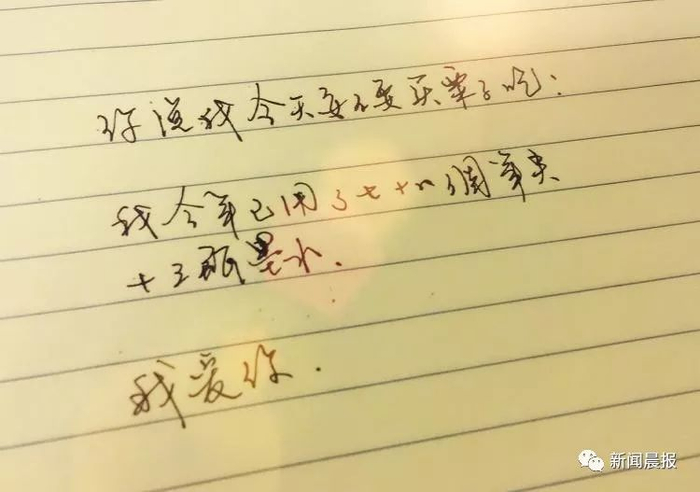 你说我今天要不要买栗子吃:
我今年已用了七十八个笔尖
十三瓶墨水.
我爱你.
新闻晨报